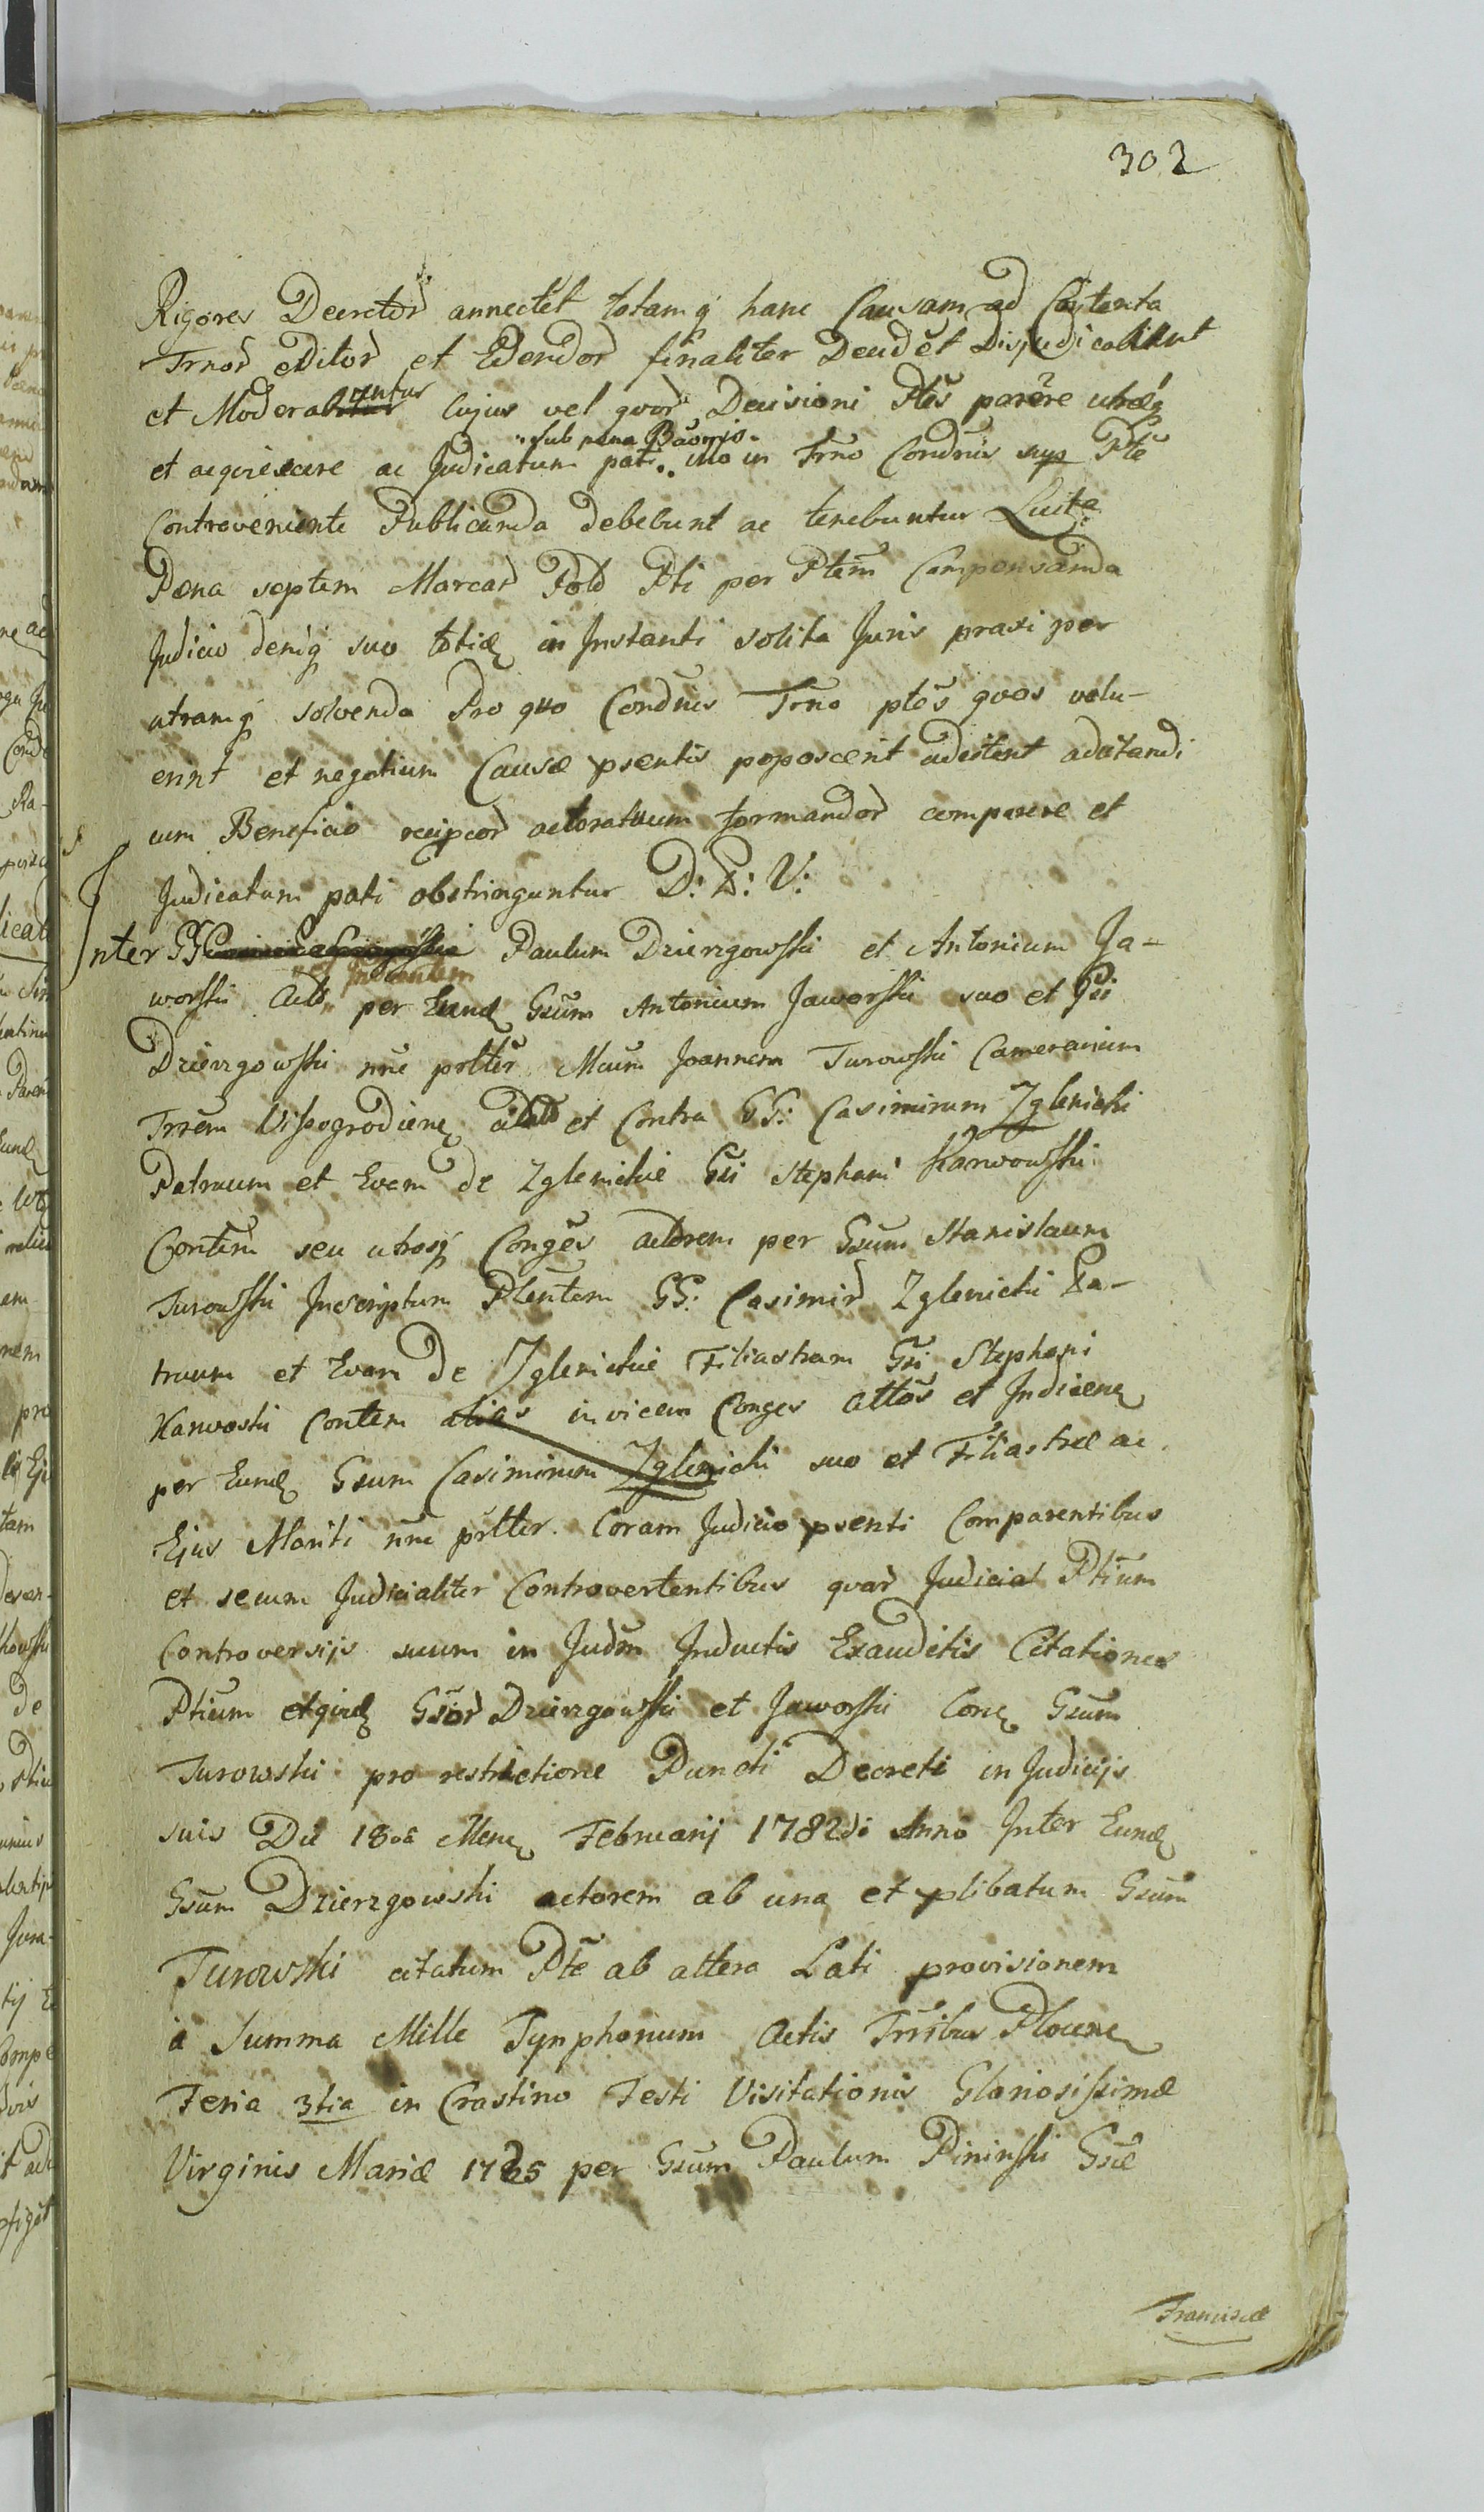 302
Rigores Decretor annectet totamq hanc Causam ad Contenta
Trnor editor et Edendor finaliter Decidet Dijudicabunt
et Moderabuntur Cujus vel quor Decisioni Ptes parere utræq
et acquiescere ac Judicatum pati sub pena Bãonis in Trno Condnis sup Pte
Contraveniente Publicanda debebunt ac tenebuntur Luita
Pæna septem Marcar Pold Pti per Ptem Compensanda
Judicio deniq suo totiæ in Instanti solita Juris praxi per
utramq solvenda Pro quo Condnis Trno ptes quos volu-
erint et negotium Causæ psentis poposcerit adcitent adcitandi
cum Beneficio recipcor actoratuum formandor comparere et
Judicatum pati obstringuntur D: D: V:
Inter GG Paulum Dzierzgowski et Antonium Ja-
worski Act et Indicantem per Eund Gsum Antonium Jaworski suo et Gsi
Dzierzgowski nne prltter Mcum Joannem Turowski Camerarium
Trrem Vissogrodien et Contra GG: Casimirum Zglenicki
Patruum et Evam de Zglenickie Gsi Stephani Karwowski
Contem seu utrosq Conges actorem per Gsum Stanislaum
Turowski Inscriptum Pltentem GG: Casimir Zglenicki Pa-
truum et Evam De Zglenickie Filiastram Gsi Stephani
Karwoski Contem alias invicem Conges attos et Indicen
per Eund Gsum Casimirum Zglenicki suo et Filiastræ ac
Ejus Mariti nne prltter. Coram Judicio psenti Comparentibus
et secum Judicialiter Controvertentibus quar Judicial Ptium
Controversijs suum in Judm Inductis Exauditis Citationes
Ptium etquid Gsor Dzierzgowski et Jaworski Con Gsum
Turowski pro restrictione Puncti Decreti in Judicijs
suis Die 18va Men Februarij 1782di Anno Inter Eund
Gsum Dzierzgowski actorem ab una et plibatum Gsum
Turowski citatum Pte ab altera Lati provisionem
a Summa Mille Tynphonum Actis Trribus Plocen
Feria 3tia in Crastino Festi Visitationis Gloriosissimæ
Virginis Mariæ 1765 per Gsum Paulum Pininski Gsæ
Franciscæ